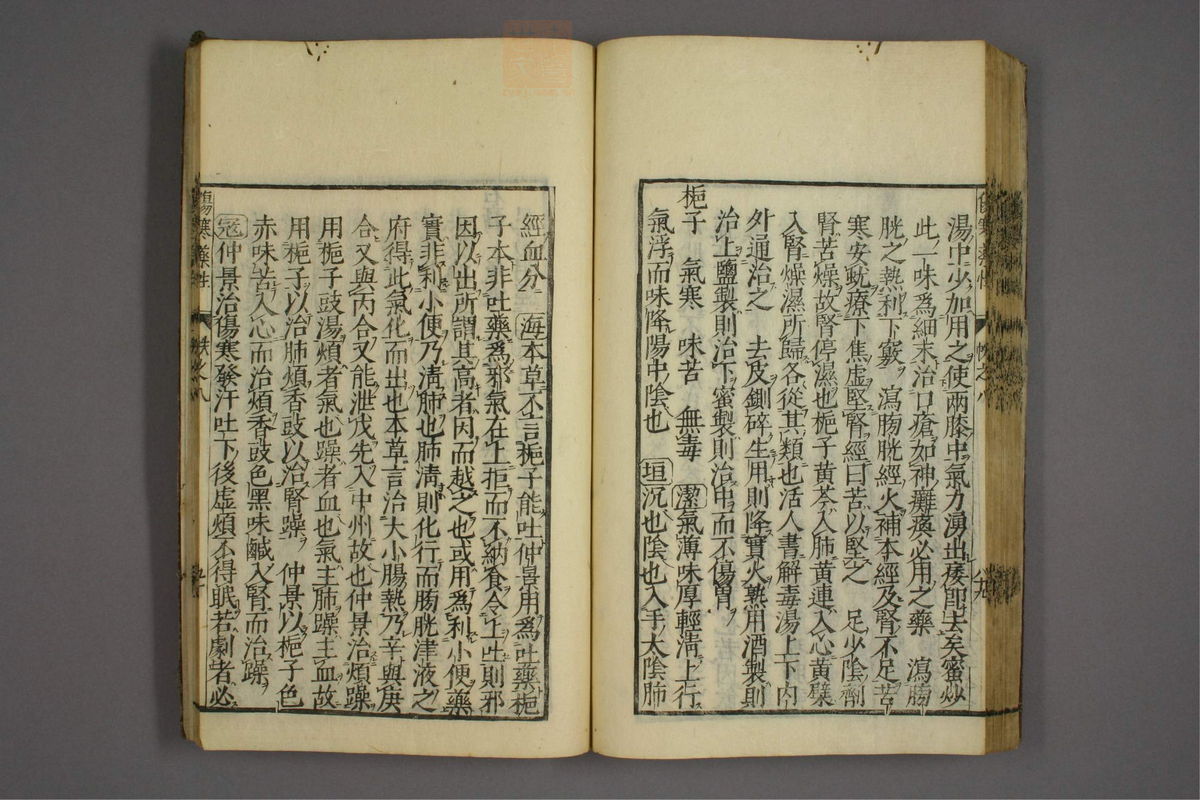 湯中少加用之使兩膝中氣力湧出痿即去矣蜜炒
此一味爲細末治口瘡如神癱瘓必用之藥　瀉膀
胱之熱利下竅　瀉膀胱經火補本經及腎不足苦
寒安蚘療下焦虛堅腎經曰苦以堅之　足少陰劑
腎苦燥故腎停濕也梔子黃芩入肺黃連入心黃蘗
入腎燥濕所歸各從其類也活人書解毒湯上下內
外通治之　去皮剉碎生用則降實火熟用酒製則
治上鹽製則治下蜜製則治中而不傷胃
梔子　氣寒　味苦　無毒　潔氣薄味厚輕淸上行
氣浮而味降陽中陰也　垣沉也陰也入手太陰肺
經血分　海本草不言梔子能吐仲景用爲吐藥梔
子本非吐藥爲邪氣在上拒而不納食令上吐則邪
因以出所謂其高者因而越之也或用爲利小便藥
實非利小便乃淸肺也肺淸則化行而膀胱津液之
府得此氣化而出也本草言治大小腸熱乃辛與庚
合又與丙合又能泄戊先入中州故也仲景治煩躁
用梔子豉湯煩者氣也躁者血也氣主肺躁主血故
用梔子以治肺煩香豉以治腎躁　仲景以梔子色
赤味苦入心而治煩香豉色黑味鹹入腎而治躁
寇仲景治傷寒發汗吐下後虛煩不得眠若劇者必
傷寒藥性